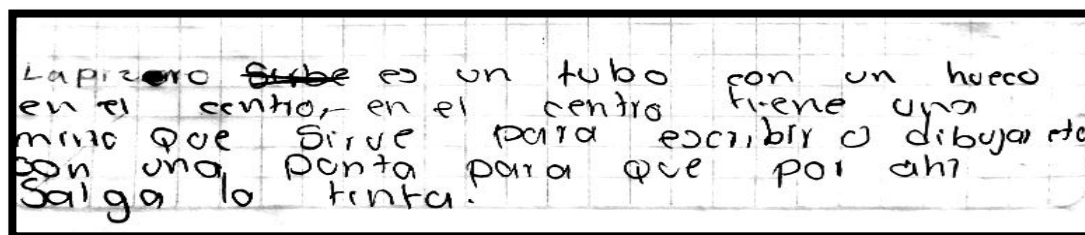 Lapizero es un tubo con un hueco
en el centro, en el centro tiene una
mina que sirve para escribir o dibujar etc
con una punta para que por ahi
Salga la tinta.